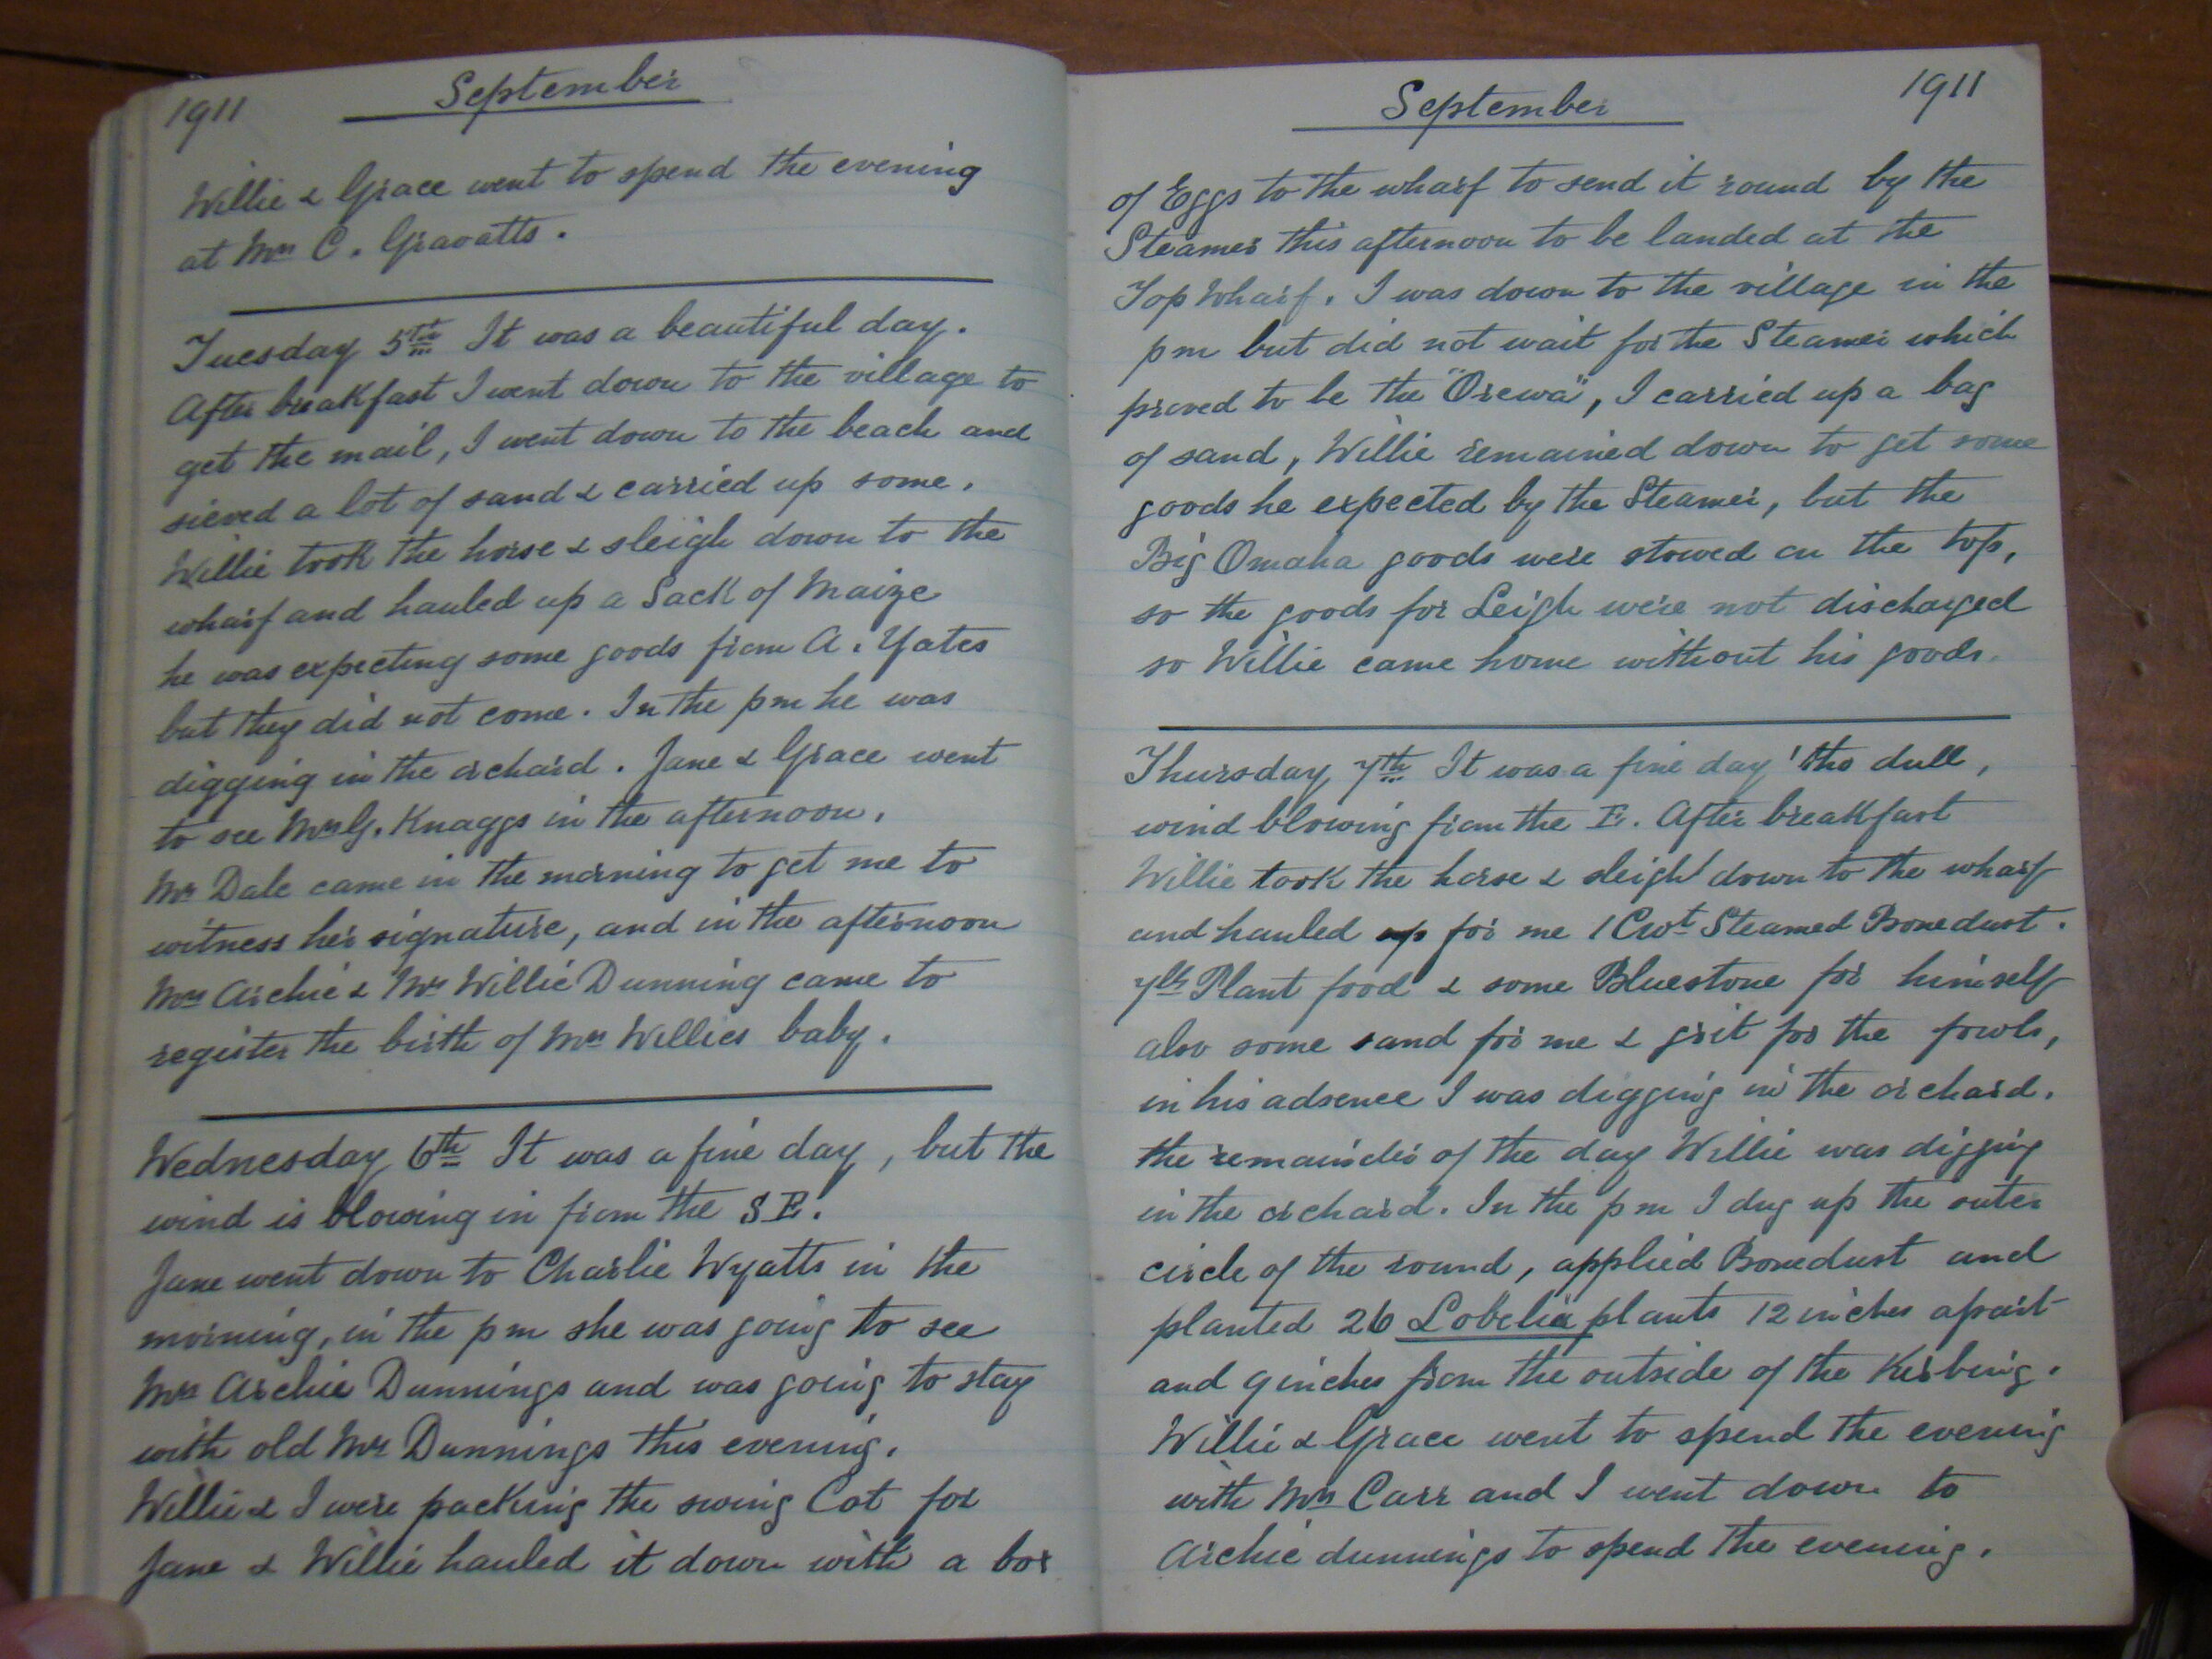 1911 September
Willie & Grace went to spend the evening
at Mrs C. Gravatts.
Tuesday 5th It was a beautiful day.
After breakfast I went down to the village to
get the mail, I went down to the beach and
sieved a lot of sand & carried up some.
Willie took the horse & sleigh down to the
wharf and hauled up a Sack of Maize
he was expecting some goods from A. Yates
but they did not come. In the pm he was
digging in the orchard. Jane & Grace went
to see Mrs G. Knaggs in the afternoon.
Mrs Dale came in the morning to get me to
witness her signature, and in the afternoon
Mrs Archie & Mrs Willie Dunning came to
register the birth of Mrs Willies baby.
Wednesday 6th It was a fine day, but the
wind is blowing in from the S E.
Jane went down to Charlie Wyatts in the
morning, in the pm she was going to see
Mrs Archie Dunnings and was going to stay
with old Mr Dunnings this evening.
Willie & I were packing the swing Cot for
Jane & Willie hauled it down with a box
September 1911
of Eggs to the wharf to send it round by the
Steamer this afternoon to be landed at the
Top Wharf. I was down to the village in the
pm but did not wait for the Steamer which
proved to be the "Orewa", I carried up a bag
of sand, Willie remained down to get some
goods he expected by the Steamer, but the
Big Omaha goods were stowed on the top,
so the goods for Leigh were not discharged
so Willie came home without his goods.
Thursday 7th It was a fine day 'tho dull,
wind blowing from the E. After breakfast
Willie took the horse & sleigh down to the wharf
and hauled up for me 1 Cwt Steamed Bonedust.
7lb Plant food & some Bluestone for himself
also some sand for me & grit for the fowls,
in his adsence I was digging in the orchard.
the remainder of the day Willie was digging
in the orchard. In the pm I dug up the outer
circle of the round, applied Bonedust and
planted 26 Lobelia plants 12 inches apart
and 9 inches from the outside of the Kerbing.
Willie & Grace went to spend the evening
with Mrs Carr and I went down to
Archie dunnings to spend the evening.